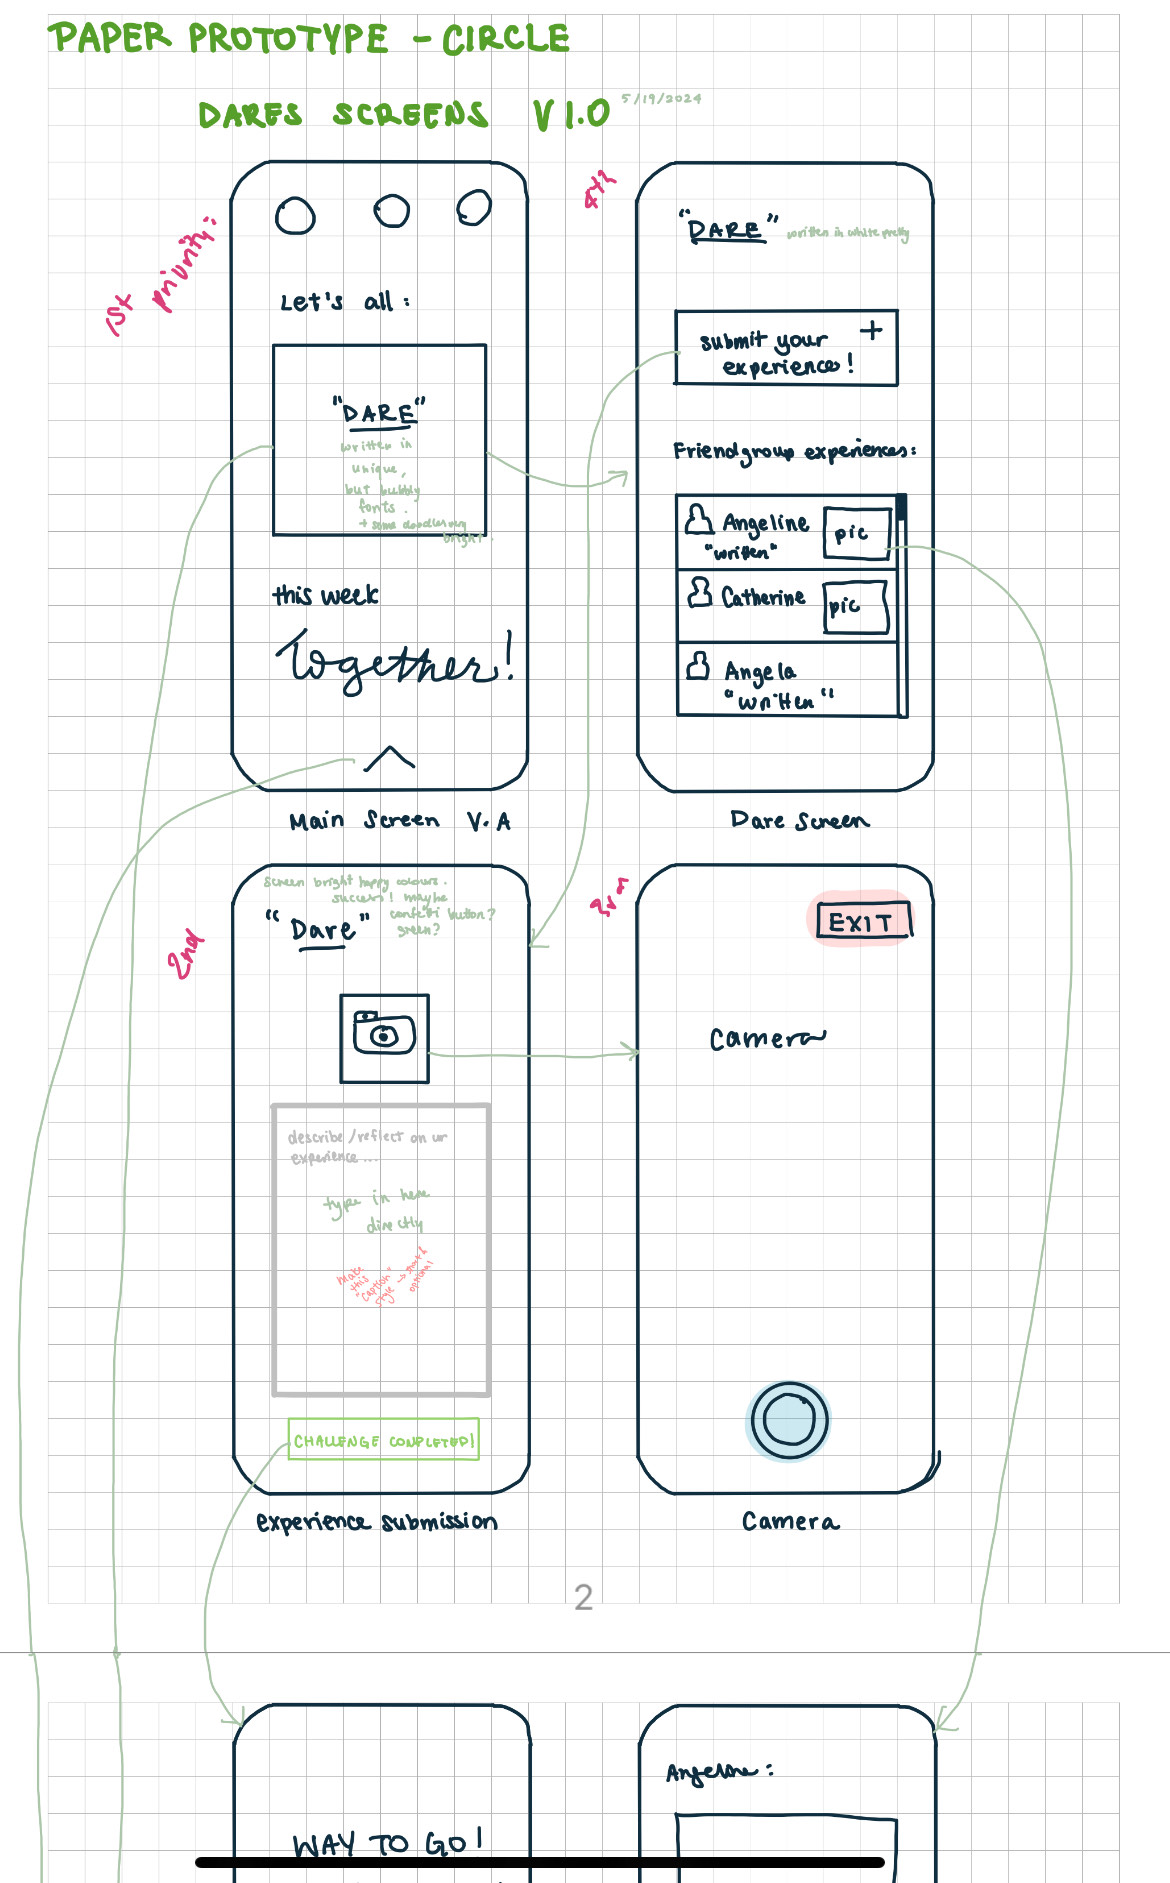 PAPER PROTOTYPE - CIRCLE
DARES SCREENS V1.0
5/19/2024
1st priority:
Let's all:
"DARE"
written in
unique,
but bubbly
fonts.
+ some doodles very
bright.
this week
Together!
Main Screen V.A
4th
"DARE" written in white pretty
submit your +
experience!
Friendgroup experiences:
Angeline
"written"
pic
Catherine
pic
Angela
"written"
Dare Screen
2nd
screen bright happy colours.
success! maybe
confetti button?
green?
"Dare"
describe/reflect on ur
experience...
type in here
directly
make
this
"caption"
style → short &
optional
CHALLENGE COMPLETED!
experience submission
3rd
EXIT
Camera
Camera
2
WAY TO GO!
Angeline: